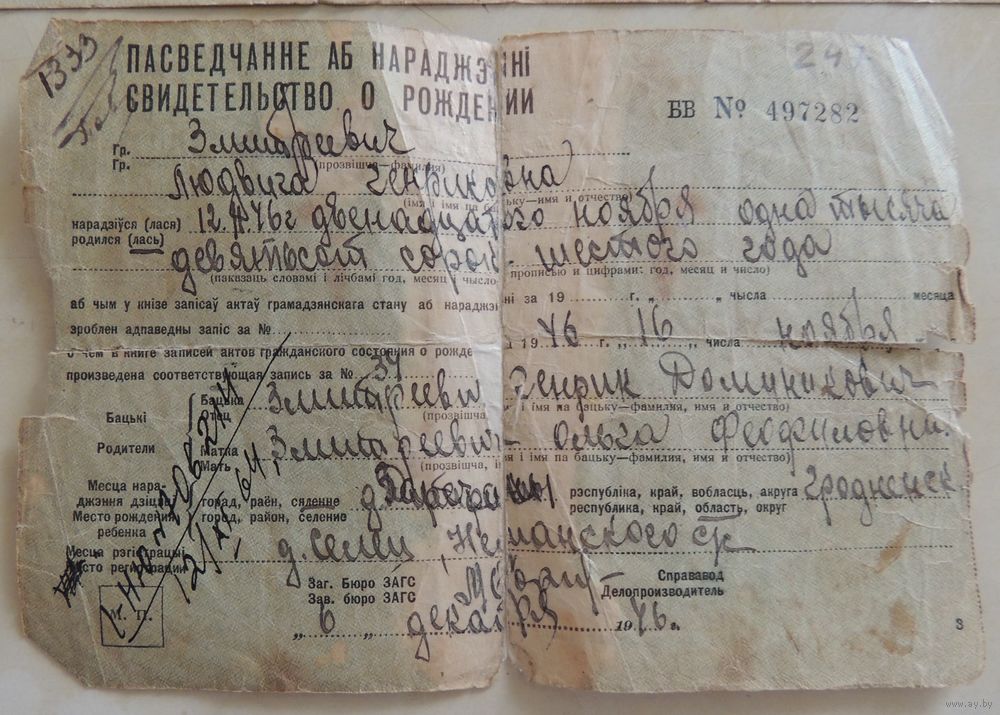 1333
24
ПАСВЕДЧАННЕ АБ НАРАДЖЭННІ
СВИДЕТЕЛЬСТВО О РОЖДЕНИИ
БВ № 497282
Гр. Змитреевич
Гр. (прозвішча—фамилия)
Людвига Генриковна
(імя і імя па бацьку—имя и отчество)
нарадзіўся (лася) 12 XI 46г двенадцатого ноября одна тысяча
родился (лась) девятьсот сорок шестого года
(паказаць словамі і лічбамі год, месяц і число прописью и цифрами: год, месяц и число)
аб чым у кнізе запісаў актаў грамадзянскага стану аб нараджэнні за 19 г. „ „ числа месяца
зроблен адпаведны запіс за №
19 46 г. „16 „ числа ноября
о чем в книге записей актов гражданского состояния о рожде
произведена соответствующая запись за № 34
Бацькі
Родители
Бацька Змитреевич Генрик Доминикович
Отец (прозвішча, і імя па бацьку—фамилия, имя и отчество)
Матка Змитреевич Ольга Феофиловна
Мать (прозвішча, ія і імя па бацьку—фамилия, имя и отчество)
Месца нараджэння дзіцяці горад, раён, сяленне д. рэспубліка, край, вобласць, акруга Гродненск
Место рождения ребенка город, район, селение республика, край, область, округ
Месца рэгістрацыі д. Селец, Неманского с/с
Место регистрации
Заг. Бюро ЗАГС Справавод
Зав. бюро ЗАГС Делопроизводитель
М. П.
„ 6 „ декабря 1946 г.
3
www.ay.by